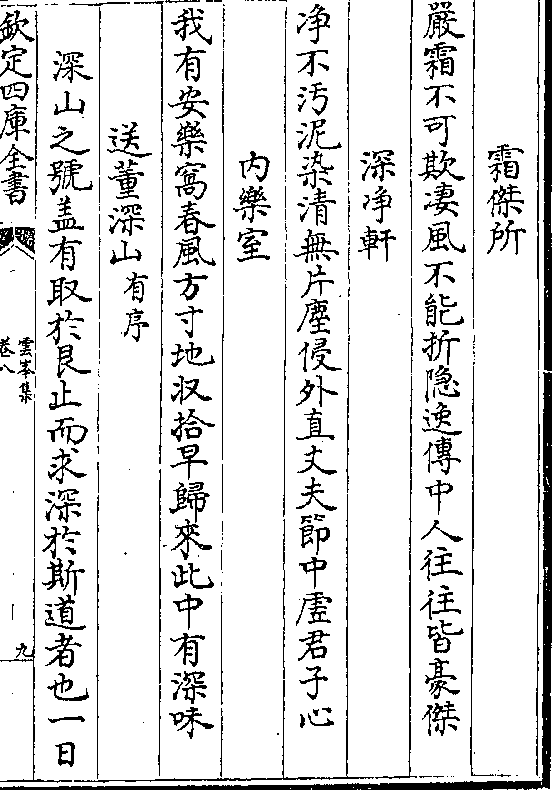 霜傑所
嚴霜不可欺凄風不能折隐逸傳中人往往皆豪傑
深净軒
净不汚泥染清無片塵侵外直丈夫節中虚君子心
内樂室
我有安樂窩春風方寸地収拾早歸來此中有深味
送董深山有序
深山之號盖有取於艮止而求深於斯道者也一日
欽定四庫全書
雲峯集
卷八
九